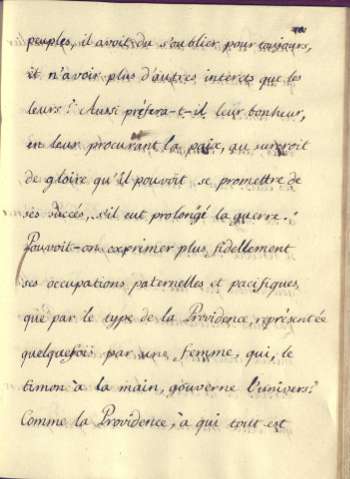 peuples, il avoit du s'oublier pour toujours,
et n'avoir plus d'autres interets que les
leurs! Aussi préfera-t-il leur bonheur,
en leur procurant la paix, au surcroit
de gloire qu'il pouvoit se promettre de
ses succés, s'il eut prolongé la guerre.
Pouvoit-on exprimer plus fidellement
ses occupations paternelles et pacifiques,
que par le type de la Providence, representée
quelquefois par une femme, qui, le
timon à la main, gouverne l'univers?
Comme la Providence, à qui tout est